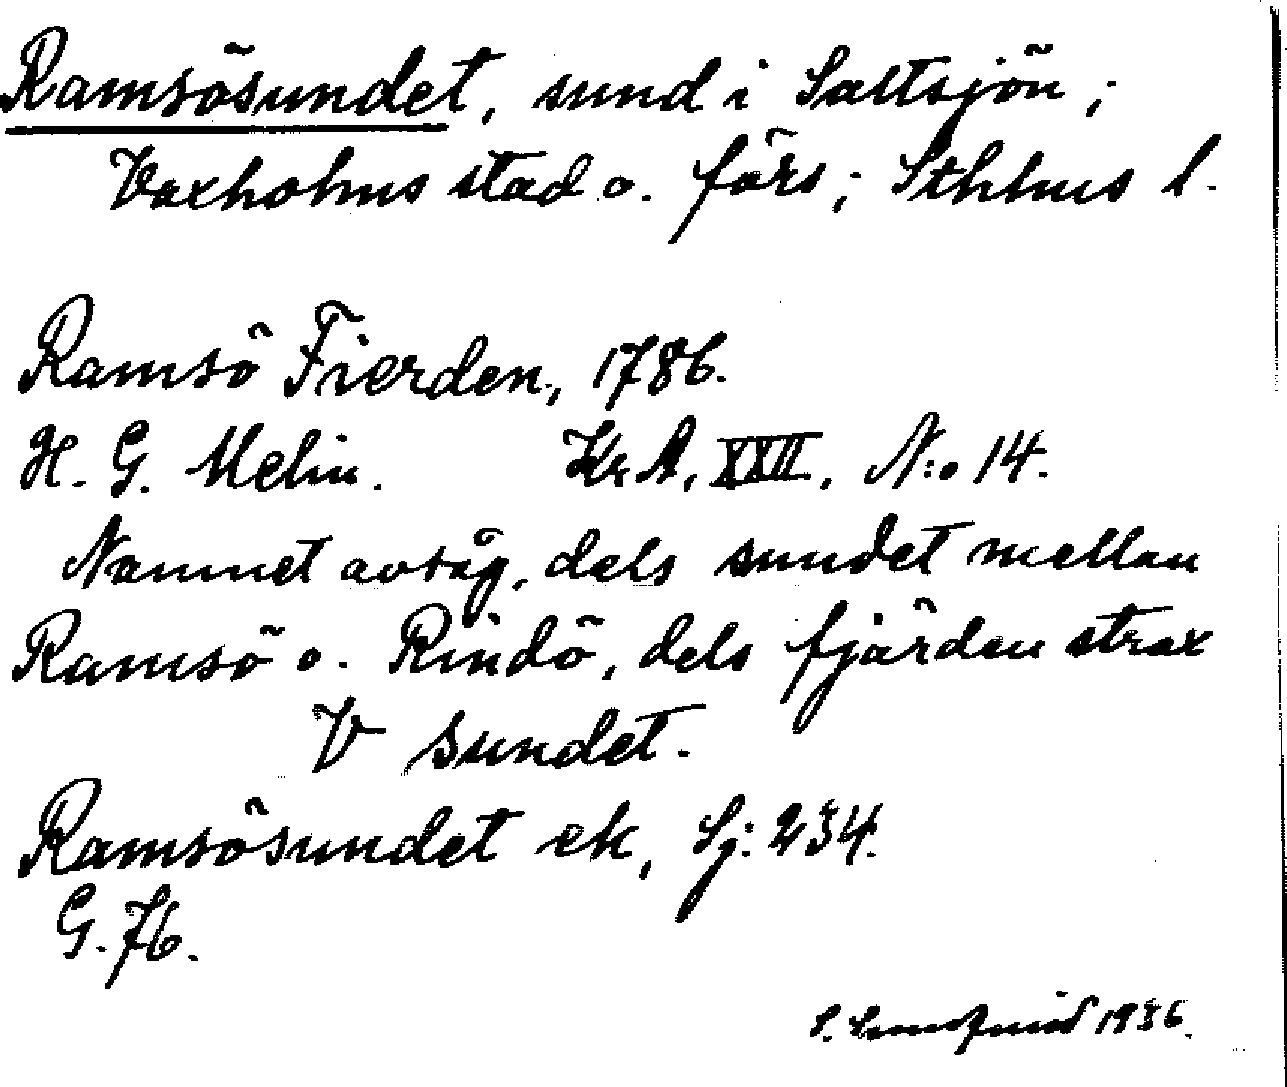 Ramsösundet, sund i Saltsjön;
Vaxholms stad o. förs; Sthlms l.
Ramsö Fierden, 1786.
H. G. Melin. Kr A, XXII, N:o 14.
Namnet avsåg, dels sundet mellan
Ramsö o. Rindö, dels fjärden strax
V sundet.
Ramsösundet ek, Sj: 234.
G. 76.
S. 1936.